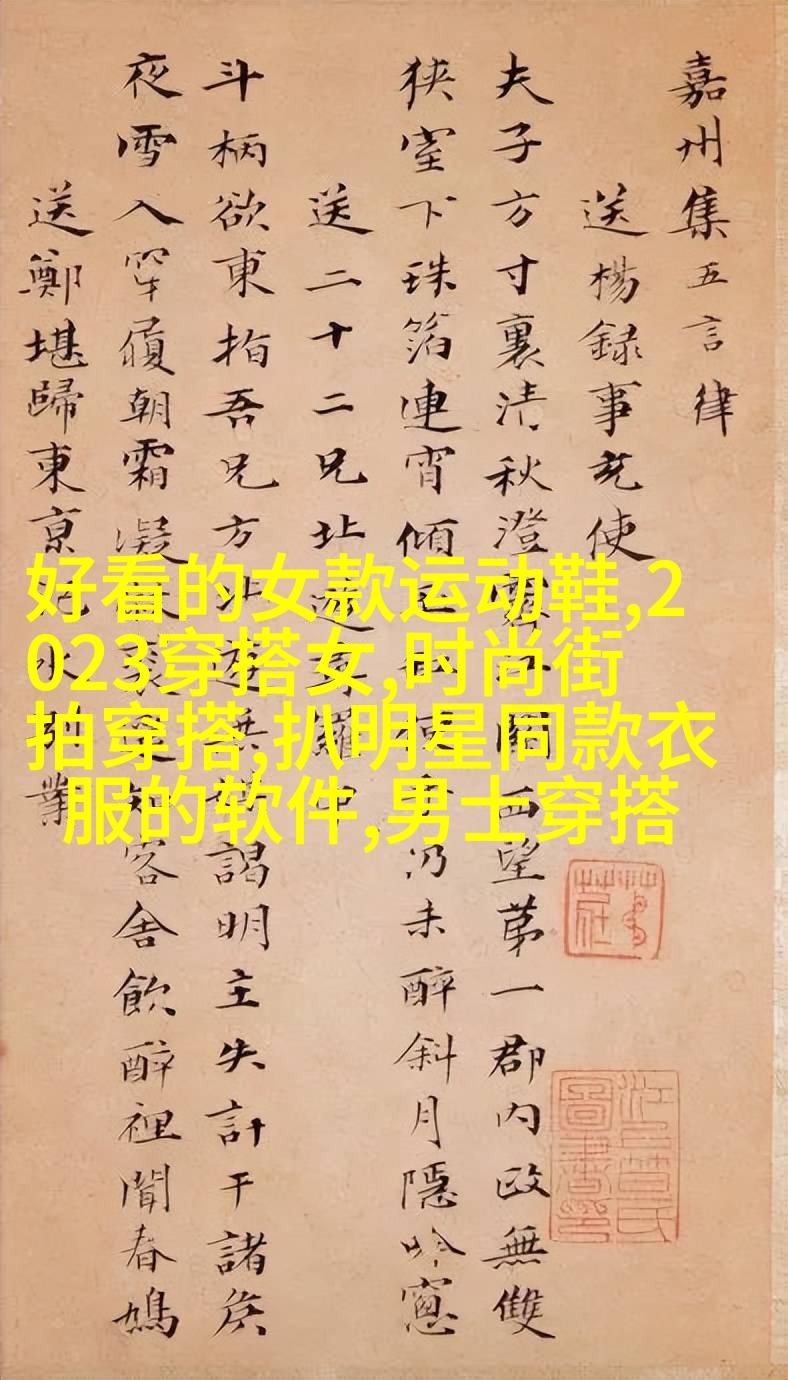 嘉州集五言律
送楊録事充使
夫子方寸裏清秋澄霽 關西望第一郡内政無雙
狹室下珠箔連宵傾 仍未醉斜月隱吟窓
送二十二兄北遊尋羅中
斗柄欲東指吾兄方北遊無媒謁明主失計干諸侯
夜雪入穿履朝霜凝敝裘遥知客舍飲醉裡聞春鳩
送鄭堪歸東京汜水別業
好看的女款运动鞋,2
023穿搭女,时尚街
拍穿搭,扒明星同款衣
服的软件,男士穿搭